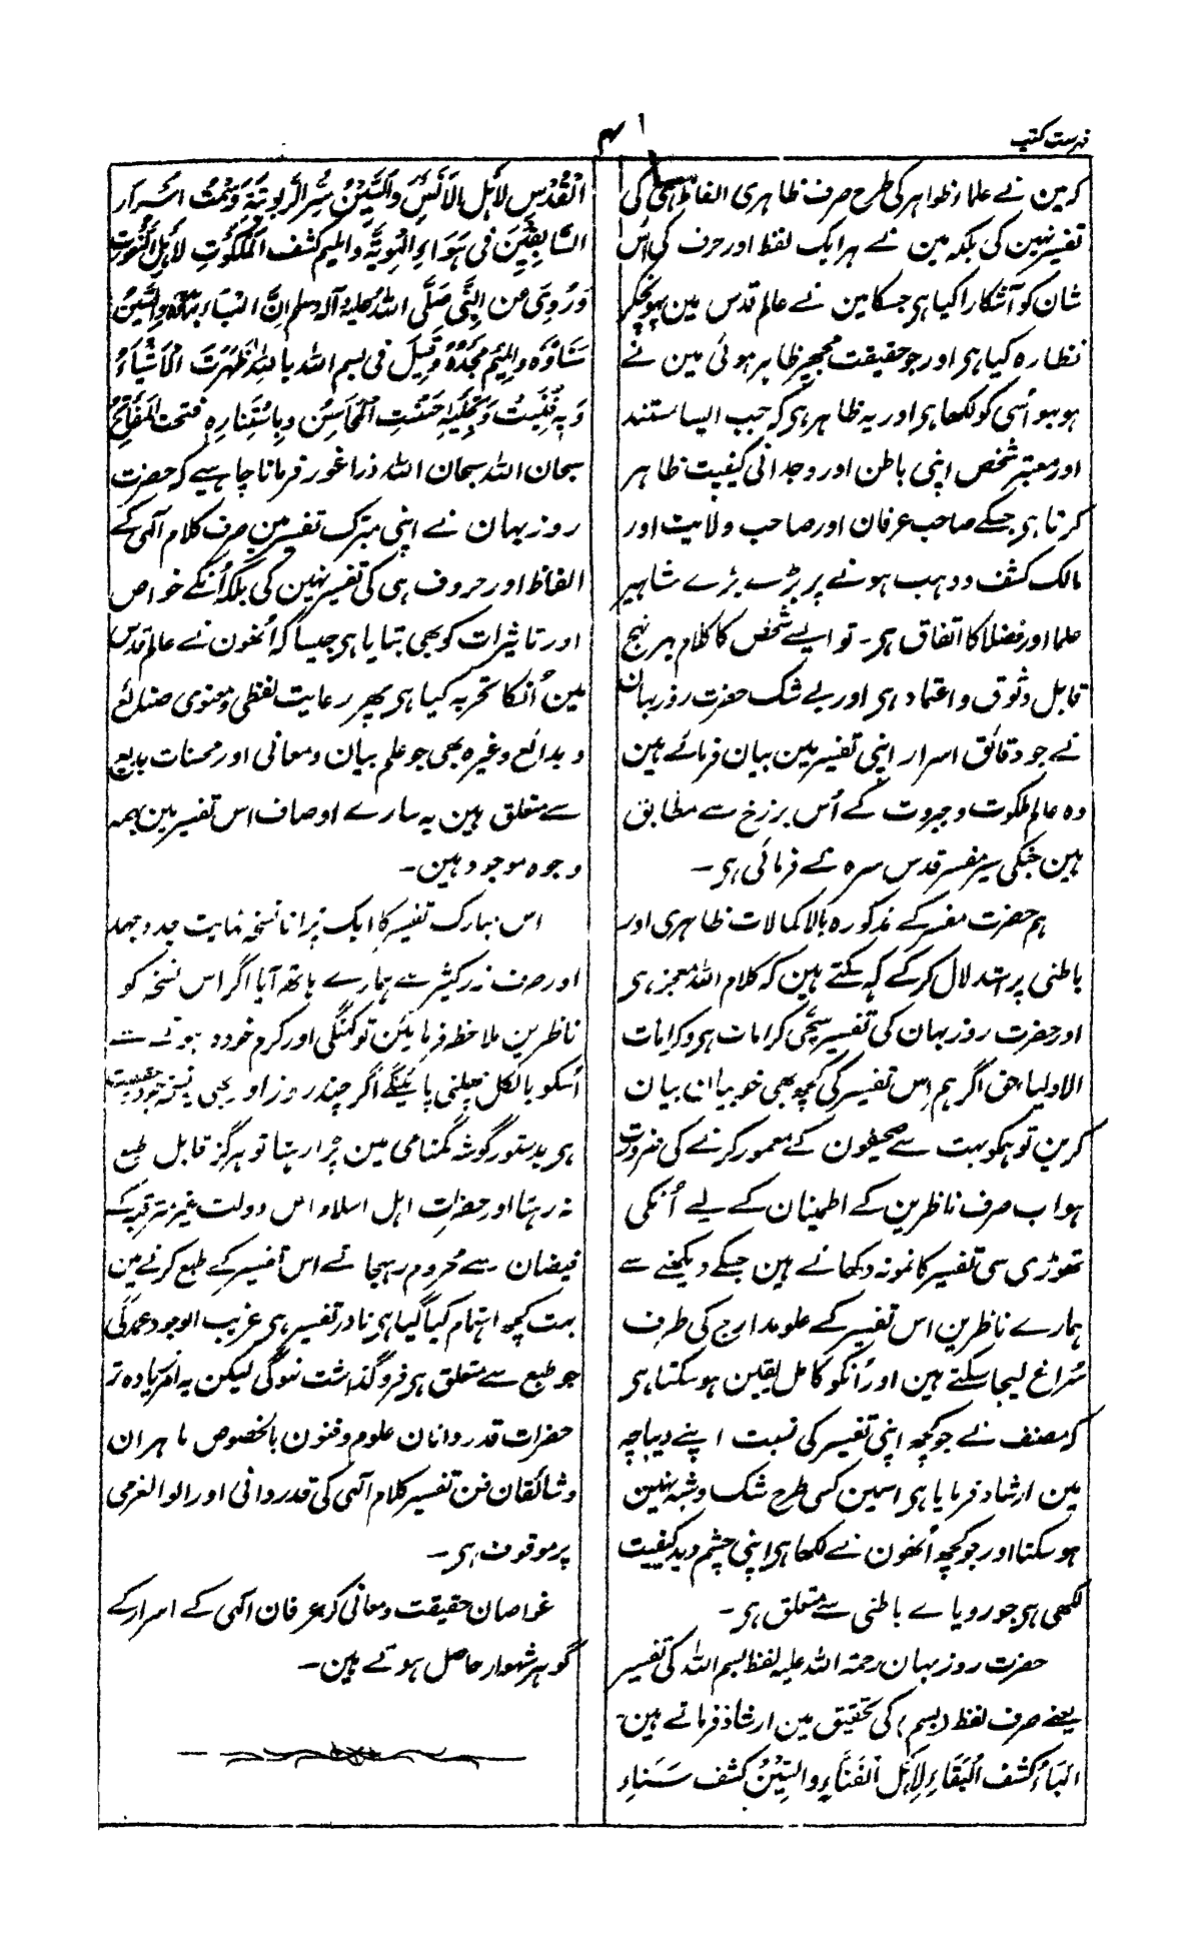 فہرست کتب
۴
کرین نے علماء ظواہر کی طرح صرف ظاہری الفاظ ہی کی
تفسیر نہین کی بلکہ مین نے ہر ایک لفظ اور حرف کی اُس
شان کو آشکارا کیا ہی جسکا مین نے عالم قدس مین پہونچکر
نظارہ کیا ہی اور جو حقیقت مجھپر ظاہر ہوئی مین نے
ہوبہو اُسی کو لکھا ہی اور یہ ظاہر ہی کہ جب ایسا مستند
اور معتبر شخص اپنی باطن اور وجدانی کیفیت ظاہر
کرتا ہی جسکے صاحب عرفان اور صاحب ولایت اور
مالک کشف و وہب ہونے پر بڑے بڑے مشاہیر
علما اور فضلا کا اتفاق ہی۔ تو ایسے شخص کا کلام بہر نہج
قابل وثوق و اعتماد ہی اور بے شک حضرت روزبہان
نے جو دقائق اسرار اپنی تفسیر مین بیان فرمائے ہین
وہ عالم ملکوت و جبروت کے اُس برزخ سے مطابق
ہین جنکی سیر مفسر قدس سرہ نے فرمائی ہی۔
ہم حضرت مفسر کے مذکورہ بالا کمالات ظاہری اور
باطنی پر استدلال کرکے کہہ سکتے ہین کہ کلام اللہ معجز ہی
اور حضرت روزبہان کی تفسیر سچی کرامات ہی و کرامات
الاولیا حق اگر ہم اِس تفسیر کی کچھ بھی خوبیان بیان
کرین تو ہمکو بہت سے صحیفون کے معمور کرنے کی ضرورت
ہو اب صرف ناظرین کے اطمینان کے لیے اُنکی
تھوڑی سی تفسیر کا نمونہ دکھاتے ہین جسکے دیکھنے سے
ہمارے ناظرین اس تفسیر کے علو مدارج کی طرف
سُراغ لیجا سکتے ہین اور اُنکو کامل یقین ہو سکتا ہی
کہ مصنف نے جو کچھ اپنی تفسیر کی نسبت اپنے دیباچہ
مین ارشاد فرمایا ہی اسمین کسی طرح شک و شبہ نہین
ہو سکتا اور جو کچھ اُنھون نے لکھا ہی اپنی چشم دید کیفیت
لکھی ہی جو رویاے باطنی سے متعلق ہی۔
حضرت روزبہان رحمۃ اللہ علیہ لفظ بسم اللہ کی تفسیر
یعنے صرف لفظ (بسم) کی تحقیق مین ارشاد فرماتے ہین۔
الباءُ کشف البَقَاءِ لِاَہْل الفَنَاءِ والسِّیْنُ کشف سَنَاءِ
الْقُدْسِ لِاَہْل الاُنْسِ والمیم
السَّابِقِیْنَ فی ہَوَاءِ الہُوِیَّۃِ والمیم کشف الْمَلَکُوْتِ لِاَہْلِ النُّعُوْتِ
وَرُوِیَ عن النَّبِی صَلَّی اللہُ علیہ وآلہ وسلم اِنَّ الْبَاءَ بَہَاؤُہٗ والسِّیْنُ
سَنَاؤُہٗ والْمِیْمُ مَجْدُہٗ وَقِیْلَ فی بسم اللہ بِاللہِ ظَہَرَتْ الْاَشْیَاءُ
وَبِہٖ فَنِیَتْ وَبِتَجَلِّیْہٖ حَسُنَتِ الْمَحَاسِنُ وَبِاسْتِتَارِہٖ فتحت المَفَاتِحُ
سبحان اللہ سبحان اللہ ذرا غور فرمانا چاہیے کہ حضرت
روزبہان نے اپنی متبرک تفسیر مین صرف کلام الٓہی کے
الفاظ اور حروف ہی کی تفسیر نہین کی بلکہ اُنکے خواص
اور تاثیرات کو بھی بتایا ہی جیسا کہ اُنھون نے عالم قدس
مین اُنکا تجربہ کیا ہی پھر رعایت لفظی و معنوی صنائع
و بدائع وغیرہ بھی جو علم بیان و معانی اور محسنات بدیع
سے متعلق ہین یہ سارے اوصاف اس تفسیر مین بہمہ
وجوہ موجود ہین۔
اس مبارک تفسیر کا ایک پُرانا نسخہ نہایت جد و جہد
اور صرف زر کثیر سے ہمارے ہاتھ آیا اگر اس نسخہ کو
ناظرین ملاحظہ فرمائین تو کہنگی اور کرم خوردہ ہونے سے
اُسکو بالکل چھلنی پائینگے اگر چند روز اور بھی یہ نسخہ
ہی بدستور گوشہ گمنامی مین پڑا رہتا تو ہرگز قابل طبع
نہ رہتا اور حضرات اہل اسلام اس دولت غیر مترقبہ کے
فیضان سے محروم رہجاتے اس تفسیر کے طبع کرنے مین
بہت کچھ اہتمام کیا گیا ہی نادر تفسیر ہی غریب الوجود عمدگی
جو طبع سے متعلق ہی فروگذاشت نہوگی لیکن یہ امر زیادہ تر
حضرات قدردانان علوم و فنون بالخصوص ماہران
و شائقان فن تفسیر کلام الٓہی کی قدردانی اور الوالعزمی
پر موقوف ہی۔
غواصان حقیقت و معانی کو عرفان الٓہی کے اسرار کے
گوہر شہوار حاصل ہوتے ہین۔